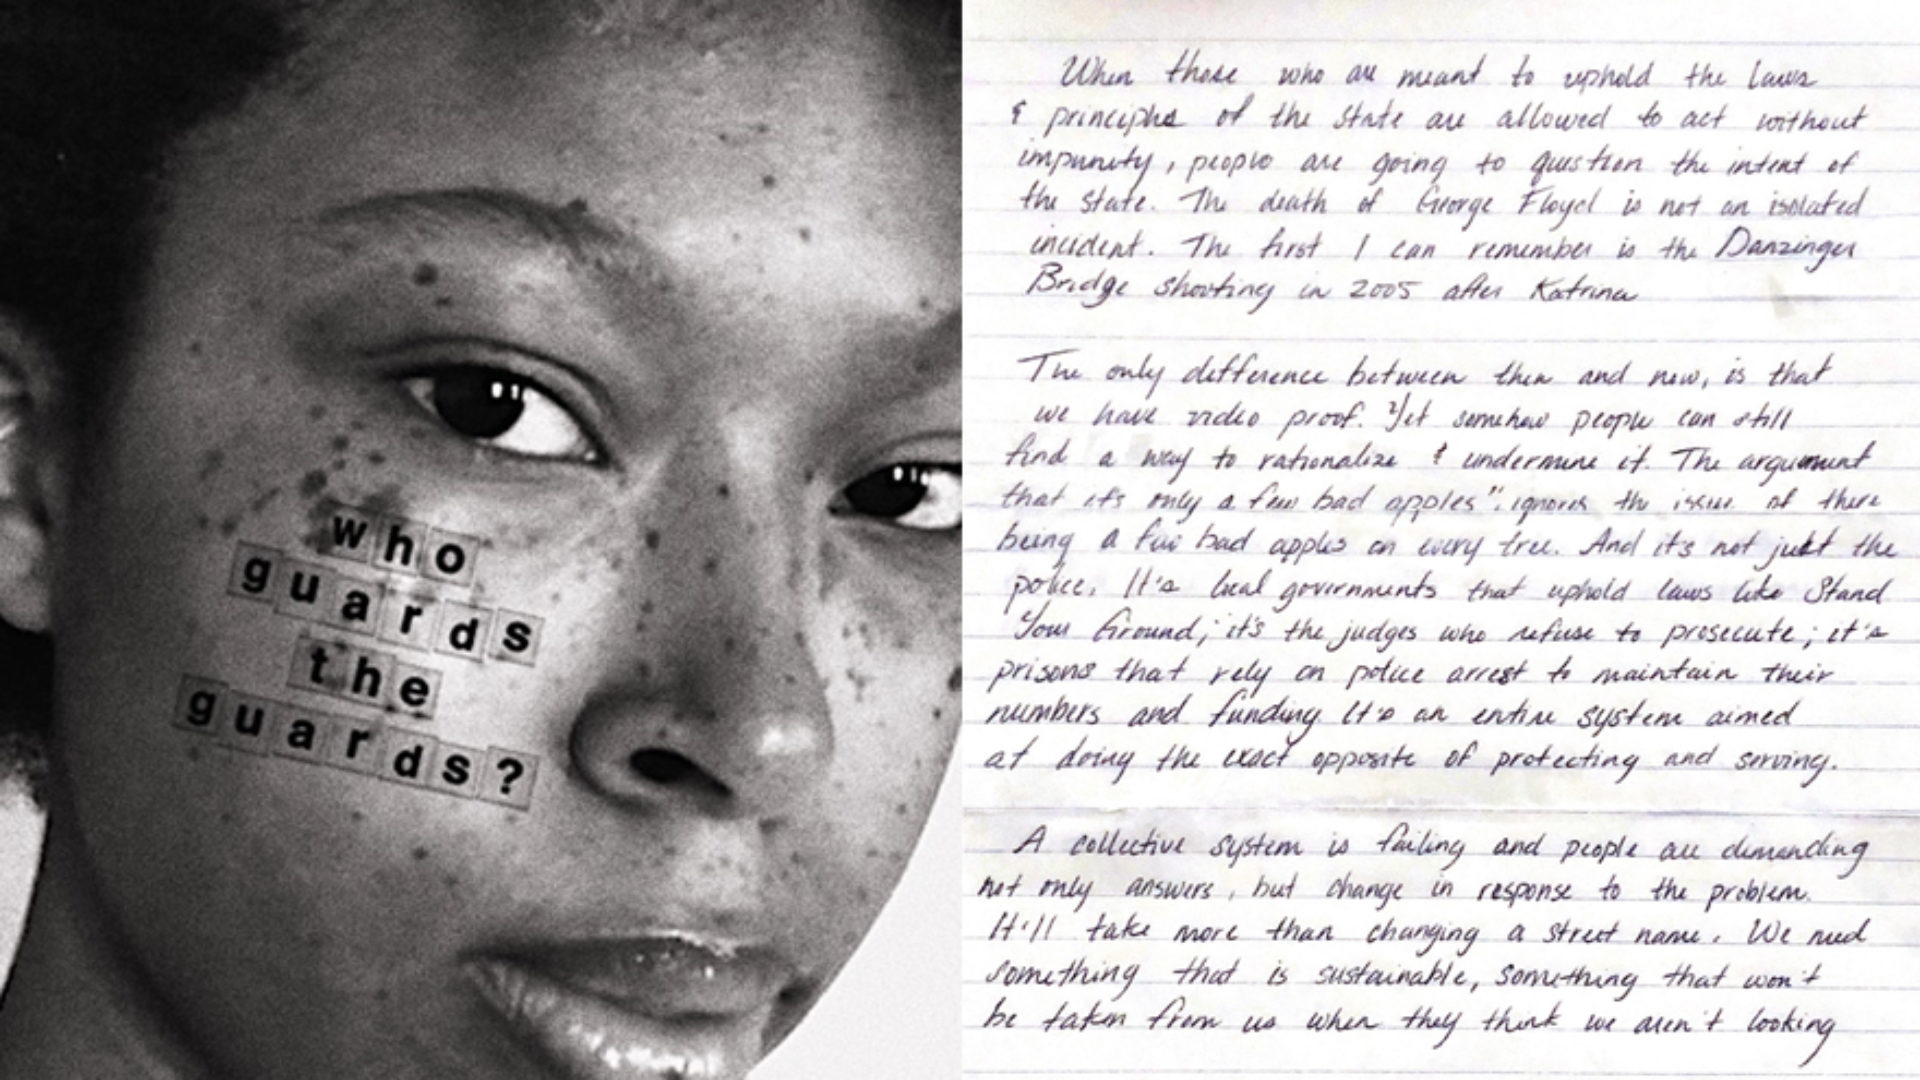 who
guards
the
guards?
When those who are meant to uphold the laws
& principles of the state are allowed to act without
impunity, people are going to question the intent of
the state. The death of George Floyd is not an isolated
incident. The first I can remember is the Danzinger
Bridge shooting in 2005 after Katrina
The only difference between then and now, is that
we have video proof. Yet somehow people can still
find a way to rationalize & undermine it. The argument
that it's only a few bad apples". ignores the issue of there
being a few bad apples on every tree. And it's not just the
police. It's local governments that uphold laws like Stand
Your Ground; it's the judges who refuse to prosecute; it's
prisons that rely on police arrest to maintain their
numbers and funding It's an entire system aimed
at doing the exact opposite of protecting and serving.
A collective system is failing and people are demanding
not only answers, but change in response to the problem.
It'll take more than changing a street name. We need
something that is sustainable, something that won't
be taken from us when they think we aren't looking